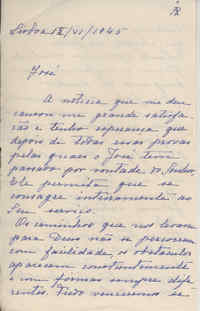 Lisboa 12/VI/1945
José
A noticia que me deu
causou me grande satisfa-
ção e tenho esperança que
depois de todas essas provas
pelas quais o José tem
passado por vontade do Senhor,
Ele permita que se
consagre inteiramente ao
Seu serviço.
Os caminhos que nos levam
para Deus não se percorrem
com facilidade, os obstáculos
aparecem constantemente
e com formas sempre dife-
rentes. Tudo venceremos se